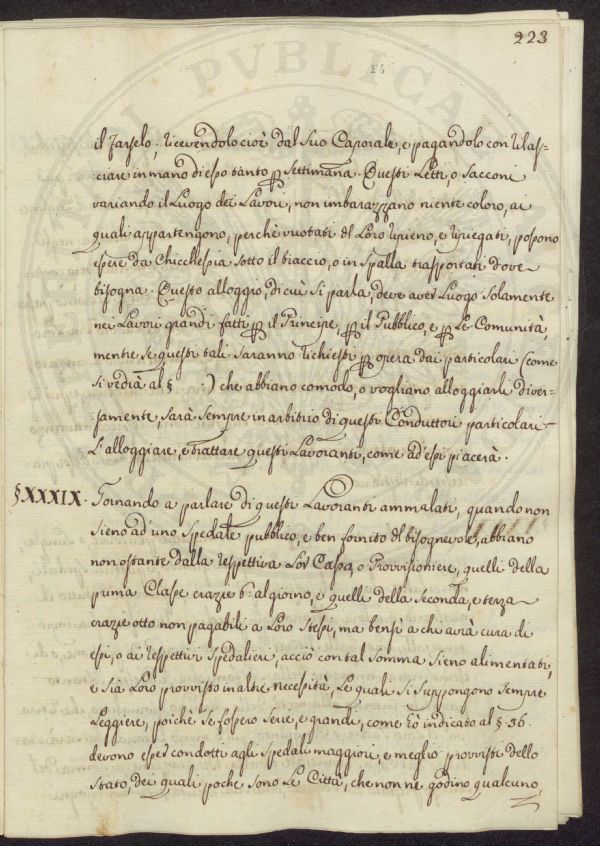 223
il farselo; ricevendolo cioè dal suo Caporale, e pagandolo con rilas=
ciare in mano d'esso tanto p Settimana. Questi Letti, o Sacconi
variando il Luogo dei Lavori, non imbarazzano niente coloro, ai
quali appartengono, perchè vuotati del Loro ripieno, e ripiegati, possono
essere da Chicchessia sotto il braccio, o in Spalla trasportati dove
bisogna. Questo alloggio, di cui si parla, deve aver Luogo Solamente
nei Lavori grandi fatti p il Principe, p il Pubblico, e p Le Comunità,
mentre se questi tali Saranno richiesti p opera dai particolari (come
Si vedrà al § .) che abbiano comodo, o vogliano alloggiarli diver=
samente, Sarà Sempre in arbitrio di questi Conduttori particolari
L'alloggiare, e trattare questi Lavoranti, come ad'essi piacerà.
§XXXIX. Tornando a parlare di questi Lavoranti ammalati, quando non
Sieno ad'uno Spedale pubblico, e ben fornito del bisognevole, abbiano
non ostante dalla respettiva Lor Cassa, o Provvisioniere, quelli della
prima Classe crazie 6: al giorno, e quelli della Seconda, e terza
crazie otto non pagabili a Loro Stessi, ma bensì a chi avrà cura di
essi, o ai respettivi Spedalieri, acciò con tal Somma Sieno alimentati,
e Sia Loro provvisto in altre necessità, Le quali Si Suppongono Sempre
Leggiere, poichè Se fossero Serie, e grandi, come hò indicato al §. 36.
devono esser condotti agli Spedali maggiori, e meglio provvisti dello
Stato, dei quali poche Sono Le Città, che non ne godino qualcuno,